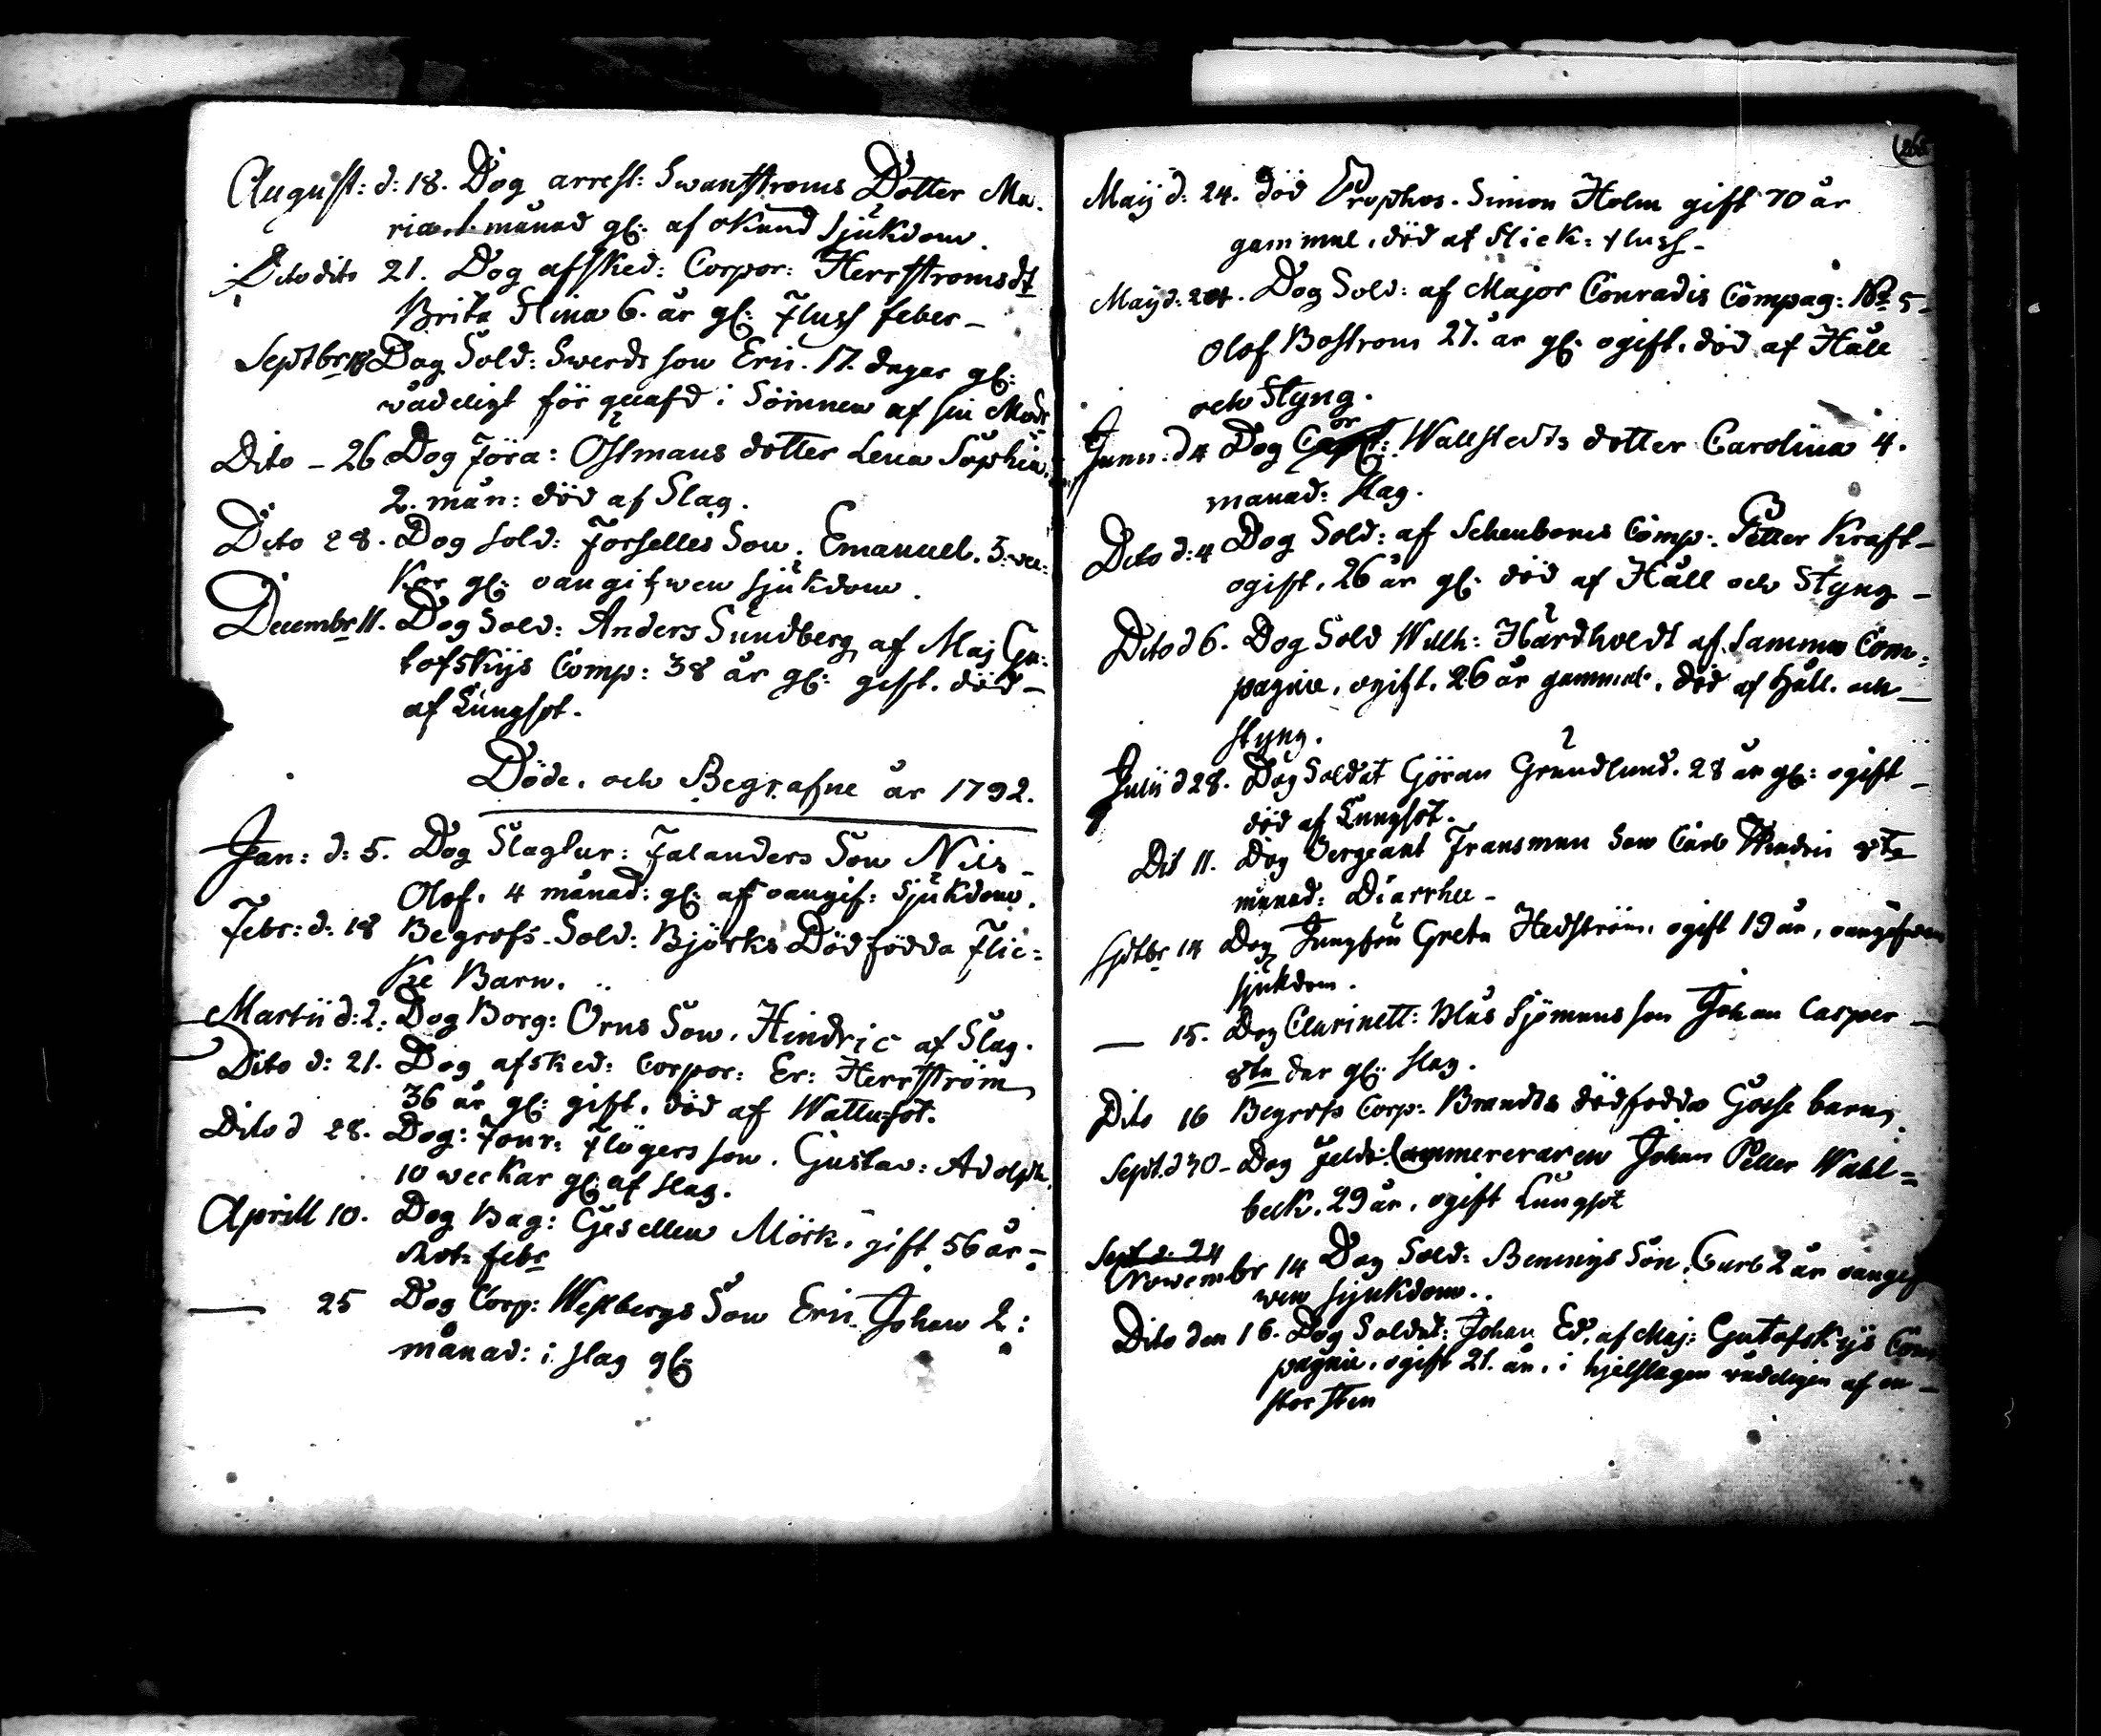 August: d: 18. Dog arrest: Swanströms Dotter Ma-
ria 1. månad gl: af okänd Sjukdom.
Dito dito 21. Dog afsked: Corpor: Herrströms dt
Brita Stina 6. år gl: Fluss feber –
Septbr 18 Dog Sold: Swerds son Eric. 17. dagar gl:
wådeligt för quafd i Sömnen af sin Modr
Dito – 26 Dog Föra: Östmans dotter Lena Sophia
2. mån: död af Slag.
Dito 28. Dog sold: Forselles Son. Emanuel. 3. wec:
kor gl: oangifwen sjukdom.
Decembr 11. Dog Sold: Anders Sundberg af Maj Gu:
tofskijs Comp: 38 år gl: gift. död –
af Lungsot.
Döde. och Begrafne år 1792.
Jan: d: 5. Dog Slagtar: Falanders Son Nils –
Olof. 4 månad: gl: af oangif: Sjukdom.
Febr: d: 18 Begrofs Sold: Björks Död födda Flic=
ke Barn.
Martii d: 2. Dog Borg: Orns Son. Hindric af Slag.
Dito d: 21. Dog afsked: Corpor: Er: Herrström
36 år gl: gift. död af Wattusot.
Dito d 28. Dog: Four: Flögers son. Gustav: Adolph.
10 weckar gl: af slag.
Aprill 10. Dog Bag: Gesellen Mörk. gift 56 år –
Rot: febr
— 25 Dog Corp: Westbergs Son Eric Johan 2:
månad: i slag gl:
Maij d: 24. död Prophos. Simon Holm gift 70 år
gammal. död af Stick: fluss –
Maij d: 24. Dog Sold: af Major Conradis Compag: No 5 –
Olof Boström 27. år gl: ogift. död af Håll
och Styng.
or
Junii. d 4 Dog Wallstedts dotter Carolina 4.
månad: slag.
Dito d: 4 Dog Sold: af Schenboms Comp: Petter Kraft –
ogift. 26 år gl: död af Håll och Styng –
Dito d 6. Dog Sold Willh: Hårdholdt af samma Com:
pagnie. ogift. 26 år gammal. död af Håll. och –
styng.
Julii d 28. Dog Soldat Göran Grundlund. 28 år gl: ogift –
död af Lungsot.
Dit 11. Dog Sergeant Fransman Son Carl 8ta
månad: Diarrhee –
Septbr 14 Dog Jungfru Greta Hedström. ogift 19 år, oangifwen
sjukdom.
— 15. Dog Clarinett: Blås Sjömans son Johan Casper –
8ta dar gl: slag.
Dito 16 Begrofs Corp: Brandts dödfödda Gosse barn.
Sept. d 30 – Dog Feldt: Cammereraren Johan Petter Wahl=
beck. 29 år. ogift Lungsot
Sept d. 24
Nowembr 14 Dog Sold: Bennings Son. Carl 2 år oangif
wen sjukdom.
Dito den 16. Dog Soldat: Johan Ed. af Maj: Gutofskijs Com
pagnie. ogift 21. år. i hjelslagen wådeligen af en –
stor sten